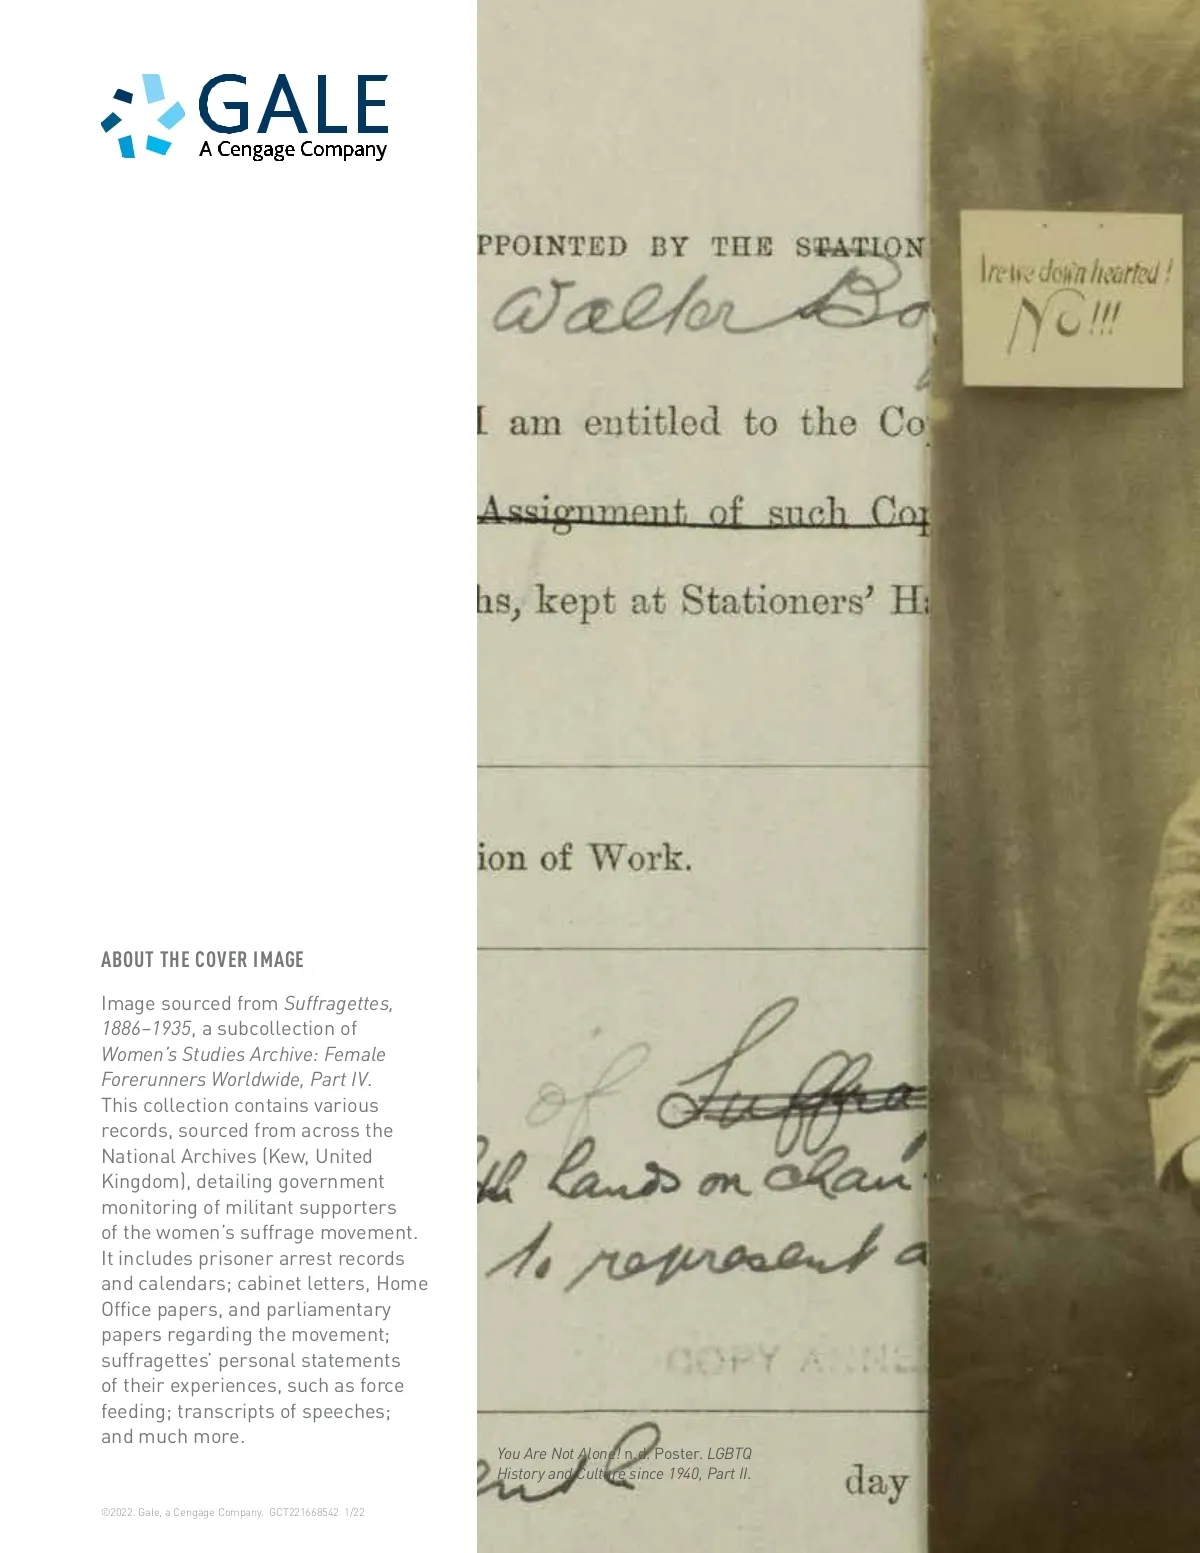 GALE
A Cengage Company
PPOINTED BY THE STATION
Walter Bo
I am entitled to the Co
Assignment of such Cop
hs, kept at Stationers' Ha
ion of Work.
of Suffra
hands on chair
to represent a
COPY ANNE
day
Are we down hearted!
NO!!!
ABOUT THE COVER IMAGE
Image sourced from Suffragettes,
1886–1935, a subcollection of
Women's Studies Archive: Female
Forerunners Worldwide, Part IV.
This collection contains various
records, sourced from across the
National Archives (Kew, United
Kingdom), detailing government
monitoring of militant supporters
of the women's suffrage movement.
It includes prisoner arrest records
and calendars; cabinet letters, Home
Office papers, and parliamentary
papers regarding the movement;
suffragettes' personal statements
of their experiences, such as force
feeding; transcripts of speeches;
and much more.
You Are Not Alone! n.d. Poster. LGBTQ
History and Culture since 1940, Part II.
©2022. Gale, a Cengage Company. GCT221668542 1/22